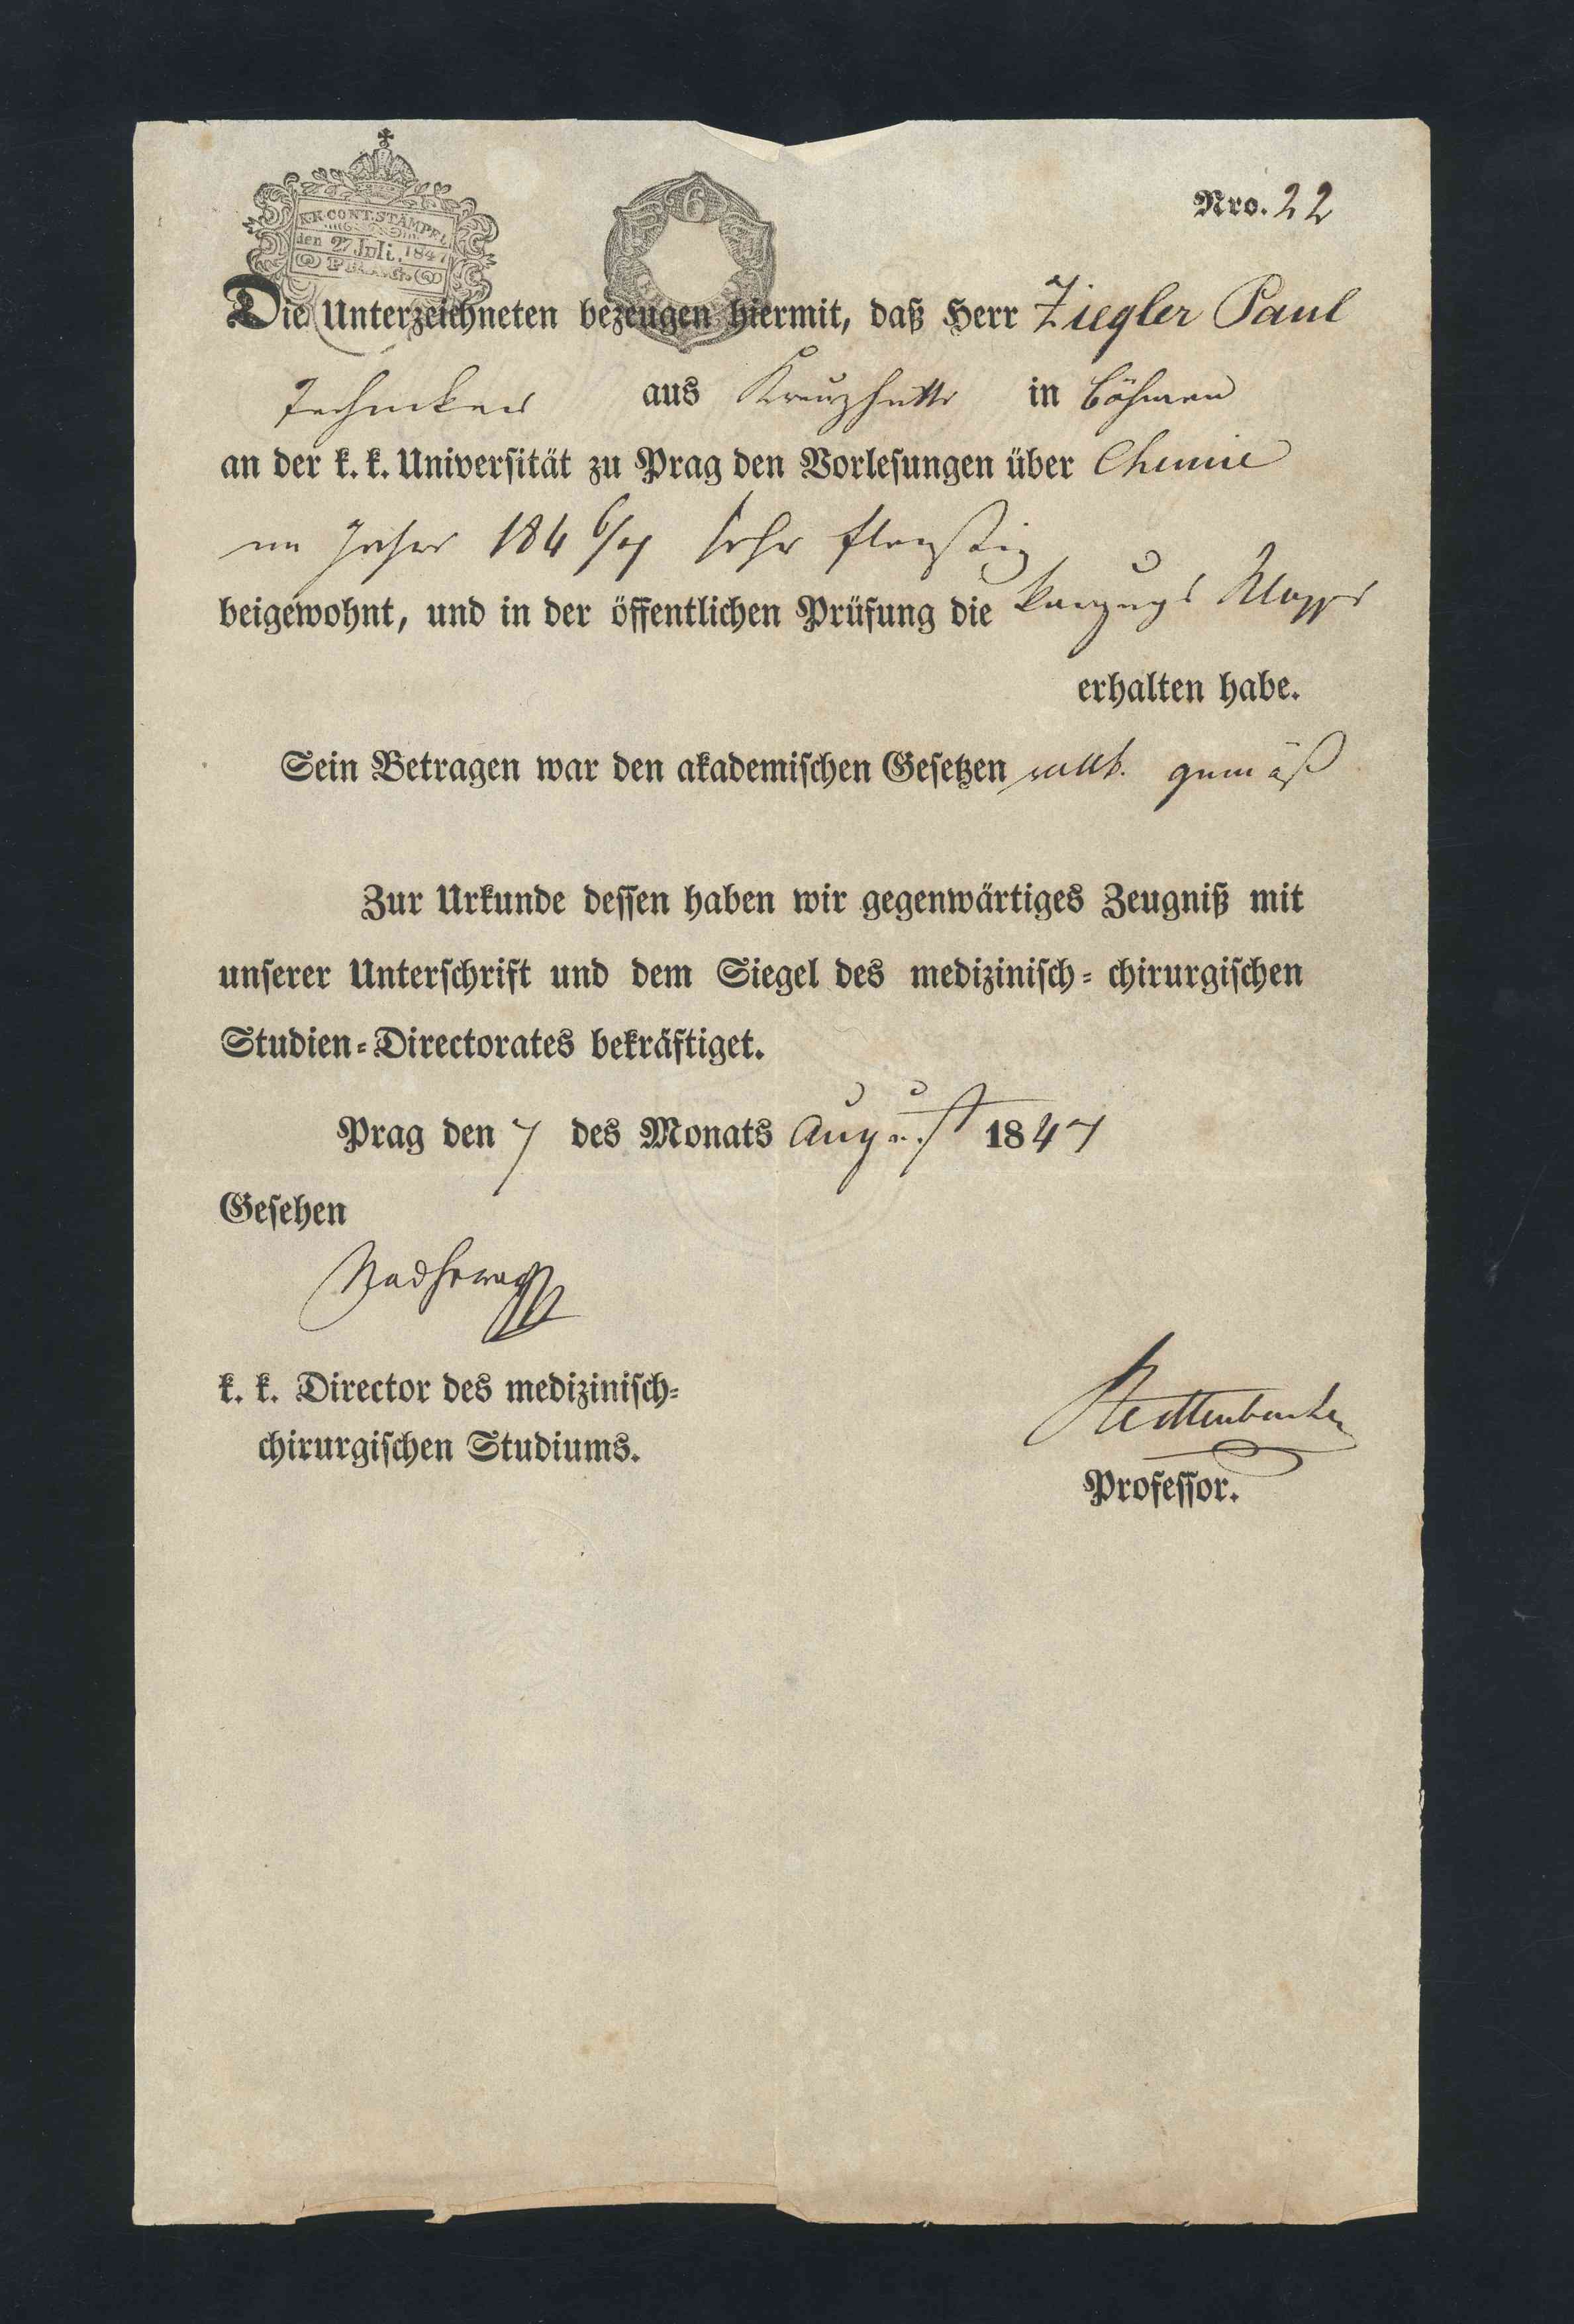 K.K. CONT. STÄMPEL
den 27 Juli. 1847
PRAG
6
Nro. 22
Die Unterzeichneten bezeugen hiermit, daß Herr Ziegler Paul
Techniker aus Kreuzhütte in Böhmen
an der k. k. Universität zu Prag den Vorlesungen über Chemie
im Jahre 1846/7 sehr fleißig
beigewohnt, und in der öffentlichen Prüfung die Vorzugs Klasse
erhalten habe.
Sein Betragen war den akademischen Gesetzen vollk. gemäß
Zur Urkunde dessen haben wir gegenwärtiges Zeugniß mit
unserer Unterschrift und dem Siegel des medizinisch-chirurgischen
Studien-Directorates bekräftiget.
Prag den 7 des Monats August 1847
Gesehen
Nadherny
k. k. Director des medizinisch-
chirurgischen Studiums.
Redtenbacher
Professor.